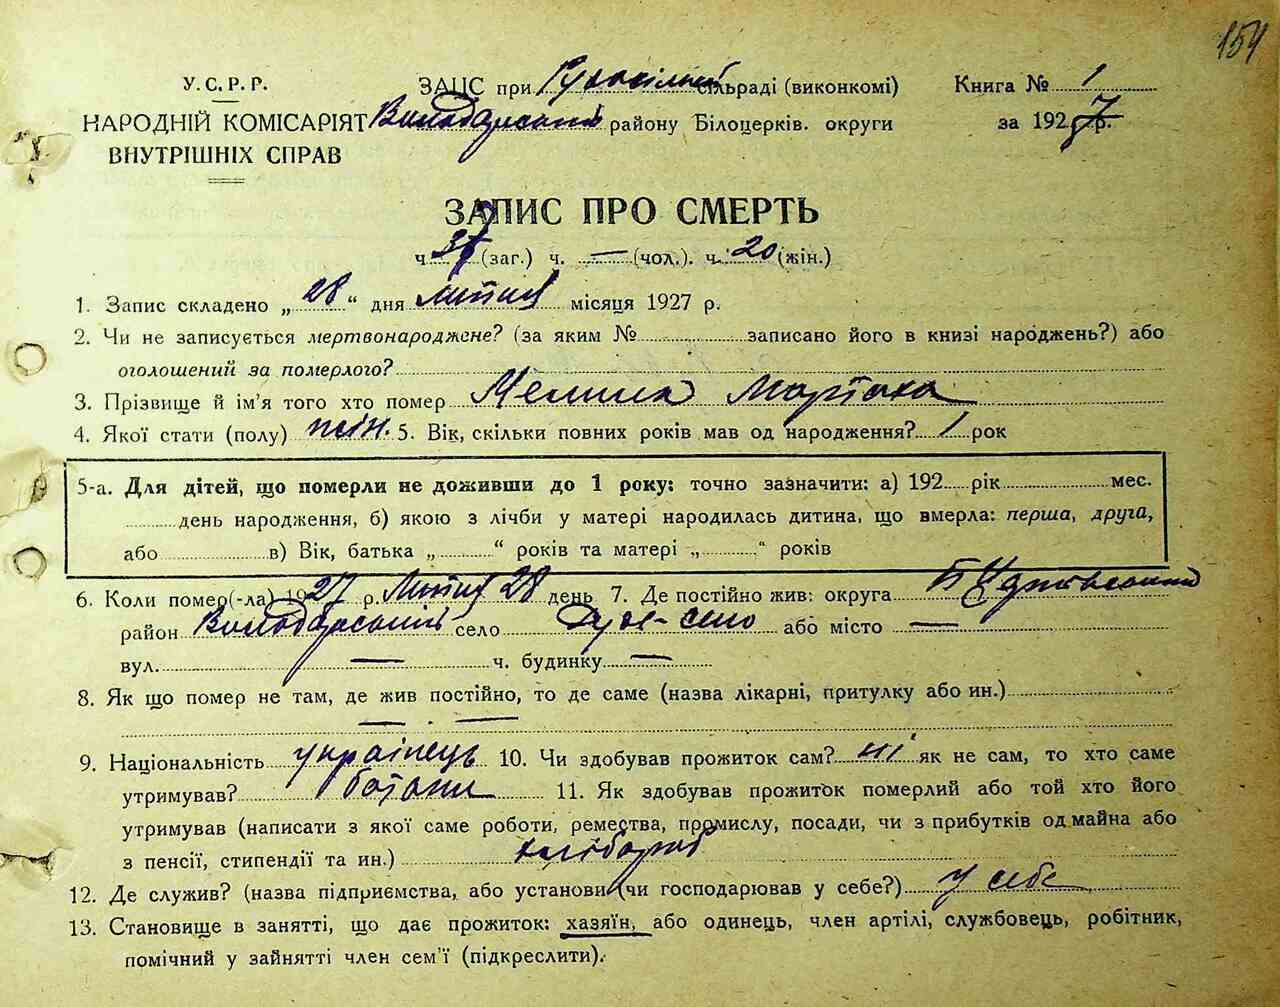 154
У.С.Р.Р.
НАРОДНІЙ КОМІСАРІЯТ
ВНУТРІШНІХ СПРАВ
ЗАЦС при сільраді (виконкомі)
Володарський району Білоцерків. округи
Книга № 1
за 1927 р.
ЗАПИС ПРО СМЕРТЬ
ч. 37 (заг.) ч. — (чол.). ч. 20 (жін.)
1. Запис складено „ 28 “ дня липня місяця 1927 р.
2. Чи не записується мертвонароджене? (за яким № записано його в книзі народжень?) або
оголошений за померлого?
3. Прізвище й ім'я того хто помер
4. Якої стати (полу) жін. 5. Вік, скільки повних років мав од народження? 1 рок
5-а. Для дітей, що померли не доживши до 1 року: точно зазначити: а) 192 рік мес.
день народження, б) якою з лічби у матері народилась дитина, що вмерла: перша, друга,
або в) Вік, батька „ “ років та матері „ “ років
6. Коли помер(-ла) 1927 р. Липня 28 день 7. Де постійно жив: округа Б Церківський
район Володарський село або місто —
вул. — ч. будинку —
8. Як що помер не там, де жив постійно, то де саме (назва лікарні, притулку або ин.)
— . —
9. Національність українець 10. Чи здобував прожиток сам? ні як не сам, то хто саме
утримував? батьки 11. Як здобував прожиток померлий або той хто його
утримував (написати з якої саме роботи, ремества, промислу, посади, чи з прибутків од майна або
з пенсії, стипендії та ин.) хлібороб
12. Де служив? (назва підприємства, або установи (чи господарював у себе?) у себе
13. Становище в занятті, що дає прожиток: хазяїн, або одинець, член артілі, службовець, робітник,
помічний у зайнятті член сем'ї (підкреслити).